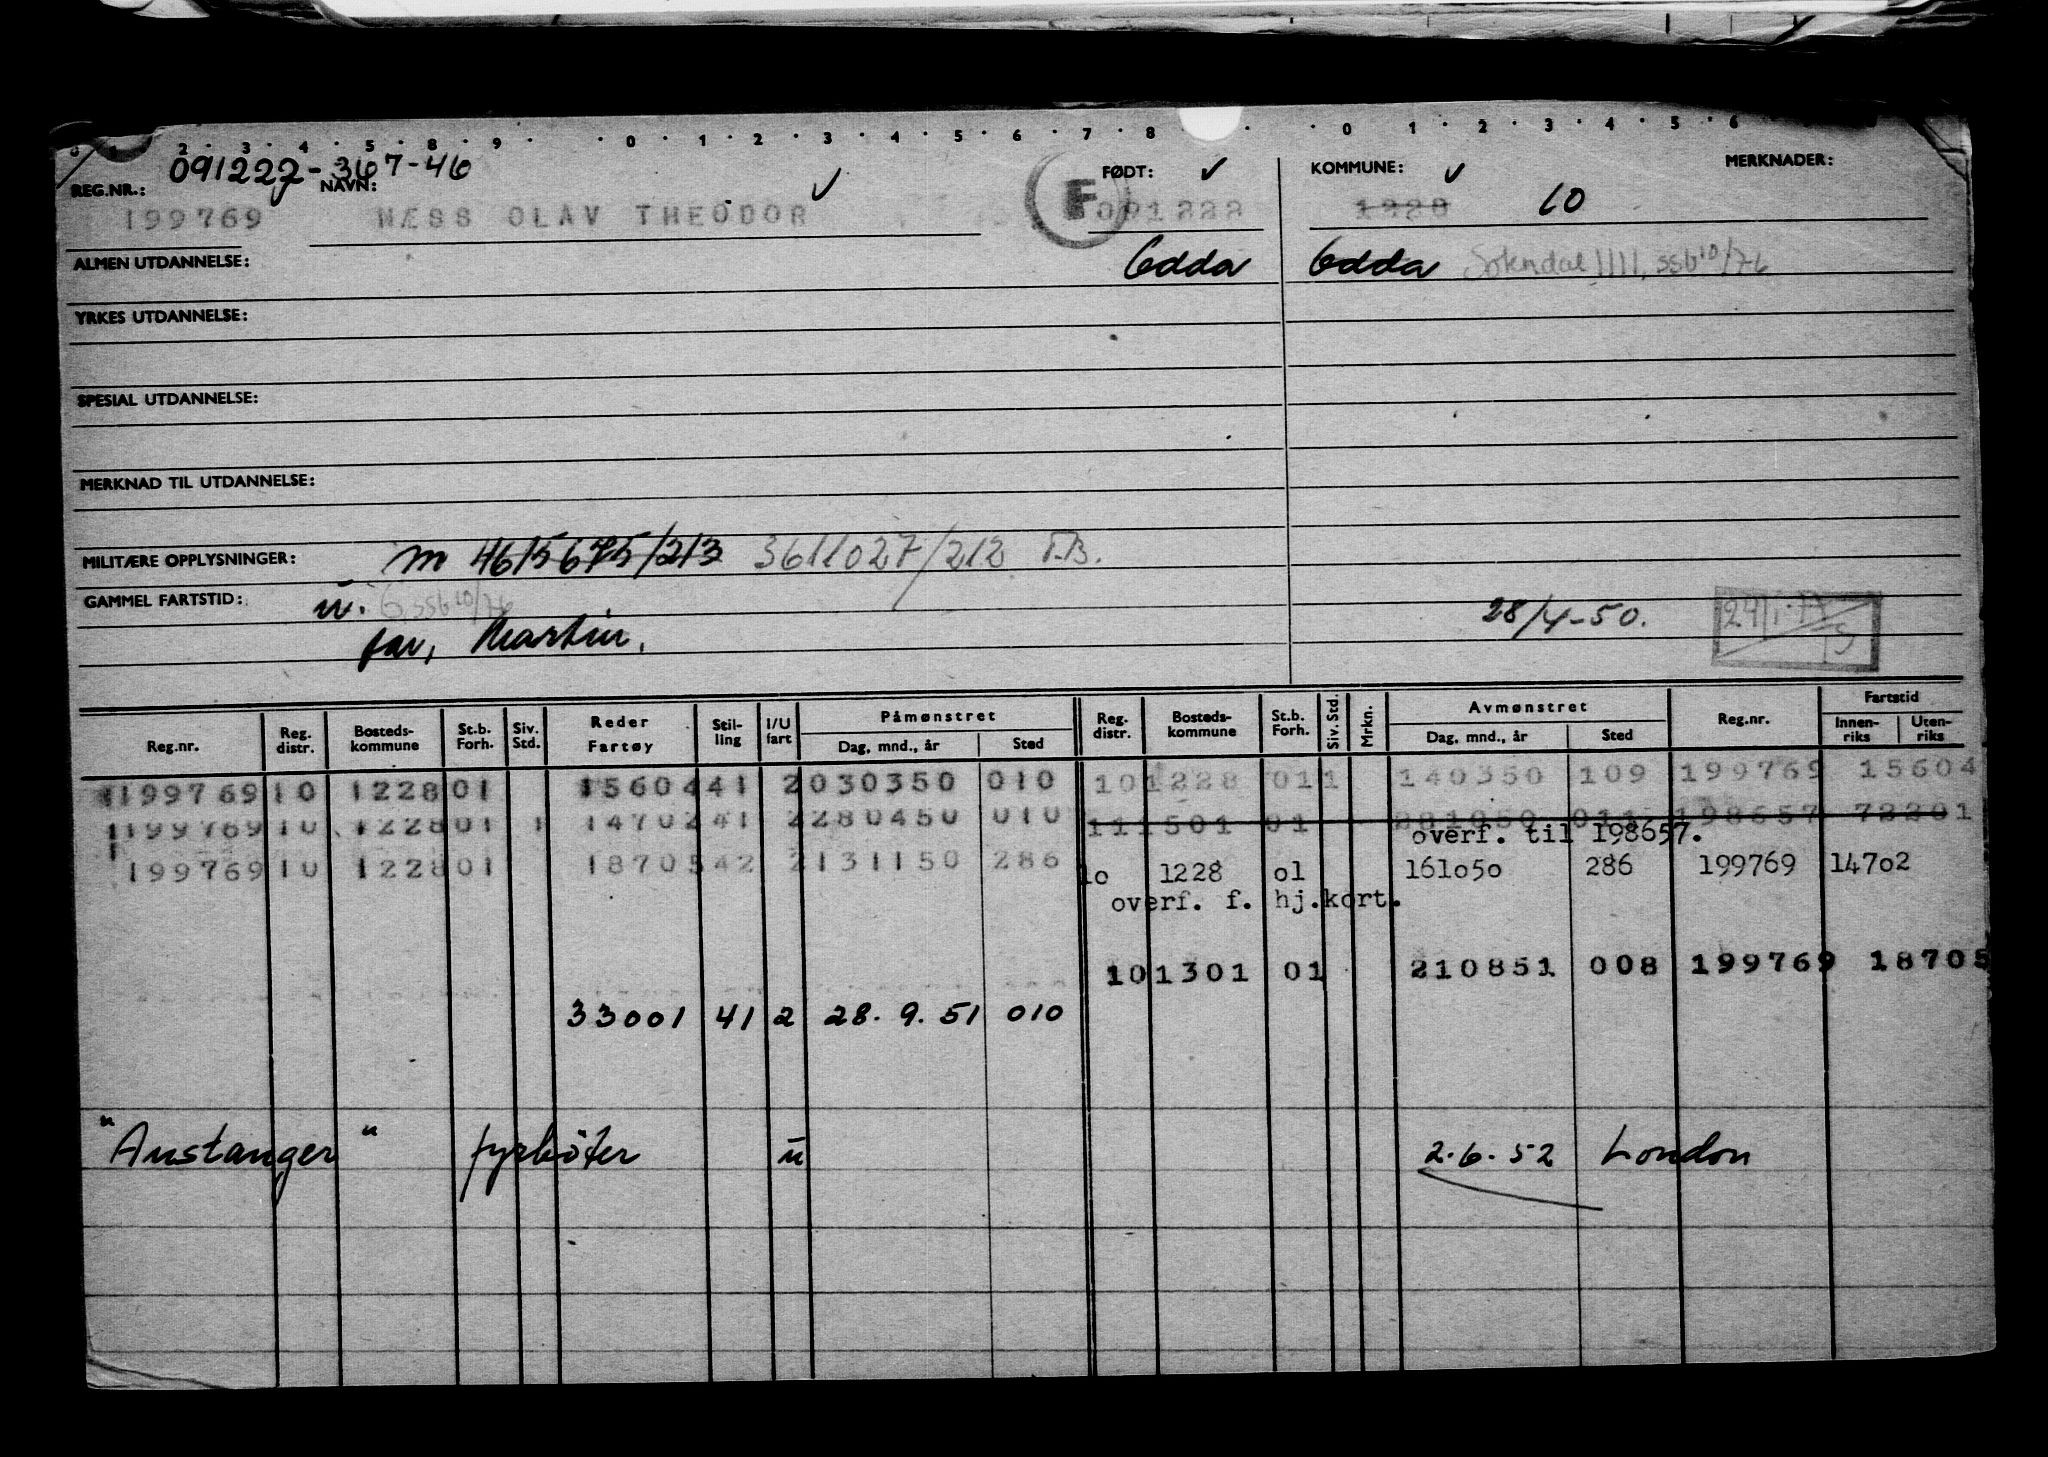 0 1 2 3 4 5 8 9 0 1 2 3 4 5 6 7 8 0 1 2 3 4 5 6
REG.NR.: 091227-367-46 NAVN: FØDT: KOMMUNE: MERKNADER:
199769 NÆSS OLAV THEODOR F 1228 10
ALMEN UTDANNELSE: Odda Odda Sokndal 1111, ssb 10/76
YRKES UTDANNELSE:
SPESIAL UTDANNELSE:
MERKNAD TIL UTDANNELSE:
MILITÆRE OPPLYSNINGER: m 4615675/213 3611027/212 T.B.
GAMMEL FARTSTID: u. G ssb 10/76 28/4-50.
far, Martin.
Reg.nr. Reg. distr. Bosteds-kommune St.b. Forh. Siv. Std. Reder Fartøy Stil-ling I/U fart Påmønstret Dag, mnd., år Sted Reg. distr. Bosteds-kommune St.b. Forh. Siv. Std. Mrkn. Avmønstret Dag, mnd., år Sted Reg.nr. Fartstid Innen-riks Uten-riks
199769 10 1228 01 15604 41 2 030350 010 10 1228 01 1 140350 109 199769 15604
199769 10 1228 01 1 14702 41 2 280450 010 11 1501 01 011 198657 72201
overf. til 198657.
199769 10 1228 01 18705 42 2 131150 286 lo 1228 ol 161o5o 286 199769 147o2
overf. f. hj.kort.
10 1301 01 210851 008 199769 18705
33001 41 2 28.9.51 010
"Austanger" fyrbøter u 2.6.52 London